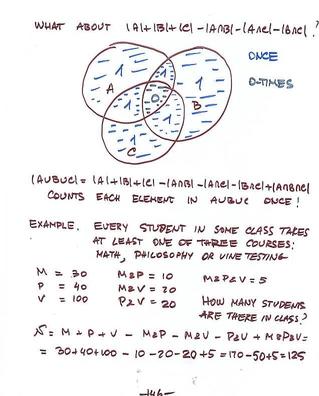 WHAT ABOUT |A|+|B|+|C|-|A∩B|-|A∩C|-|B∩C| ?
ONCE
0-TIMES
1
1
1
A
1
0
1
B
1
C
|A∪B∪C| = |A|+|B|+|C|-|A∩B|-|A∩C|-|B∩C|+|A∩B∩C|
COUNTS EACH ELEMENT IN A∪B∪C ONCE!
EXAMPLE. EVERY STUDENT IN SOME CLASS TAKES
AT LEAST ONE OF THREE COURSES:
MATH, PHILOSOPHY OR VINE TESTING
M = 30 M&P = 10 M&P&V = 5
P = 40 M&V = 20
V = 100 P&V = 20 HOW MANY STUDENTS
ARE THERE IN CLASS?
N = M + P + V - M&P - M&V - P&V + M&P&V =
= 30+40+100 - 10 - 20 - 20 + 5 = 170 - 50 + 5 = 125
-146-